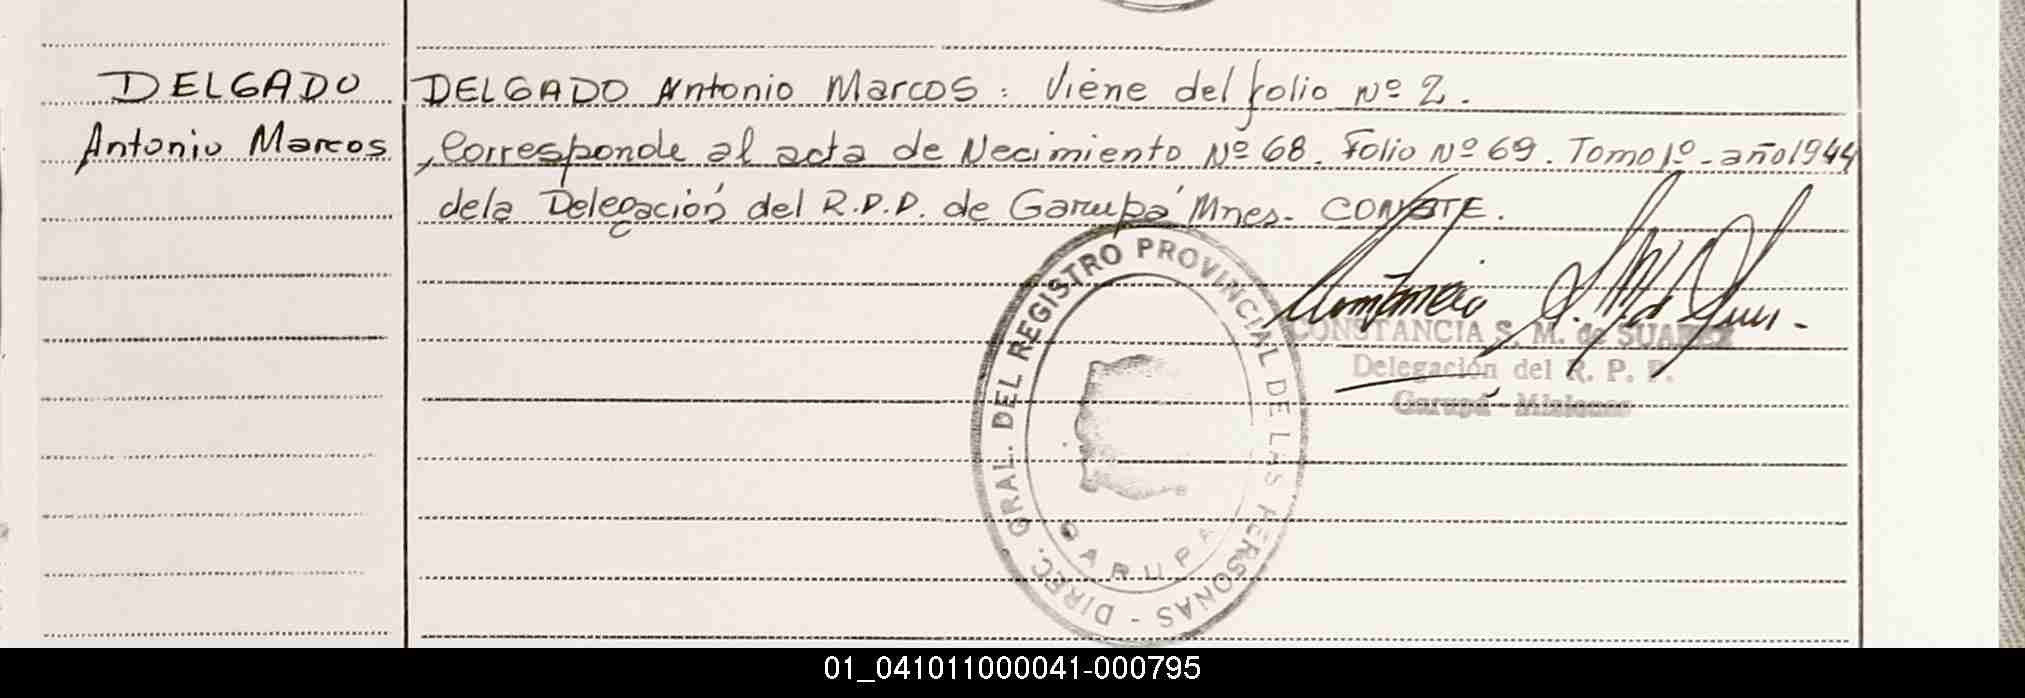 DELGADO
Antonio Marcos
DELGADO Antonio Marcos: Viene del folio Nº 2.
Corresponde al acta de Necimiento Nº 68. Folio Nº 69. Tomo 1º - año 1944
dela Delegación del R.P.P. de Garupá Mnes. CONSTE.
CONSTANCIA S. M. de SUAREZ
Delegación del R. P. P.
Garupá - Misiones
DIREC. GRAL. DEL REGISTRO PROVINCIAL DE LAS PERSONAS -
GARUPA
01_041011000041-000795